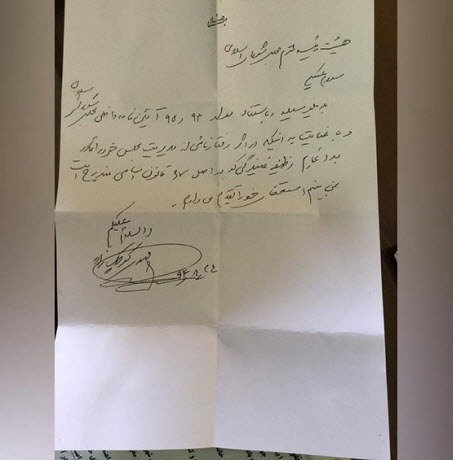 بسمه تعالی
هیئت رئیسه محترم مجلس شورای اسلامی
سلام علیکم
بدینوسیله و باستناد مواد ۹۴ و ۹۵ آئین نامه داخلی مجلس شورای اسلامی
و با عنایت به اینکه در اثر رفتارهائی از مدیریت مجلس خود را قادر
به انجام وظیفه نمایندگی که در اصل ۶۷ قانون اساسی مندرج است
نمی بینم استعفای خود را تقدیم می دارم.
والسلام علیکم